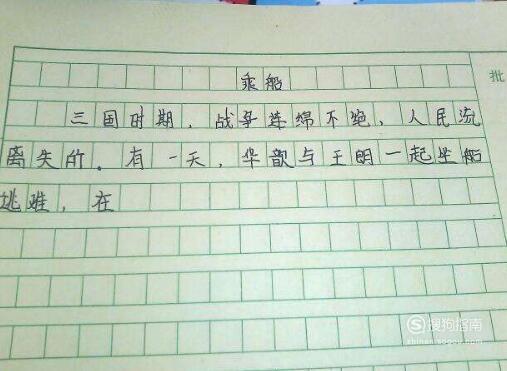 乘船
批
三国时期，战争连绵不绝，人民流
离失所。有一天，华歆与王明一起坐船
逃难，在
搜狗指南
zhinan.sogou.com